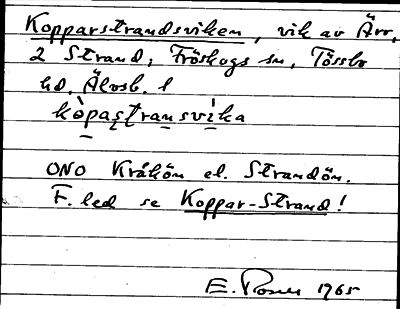 Kopparstrandsviken, vik av Ärr,
2 Strand, Fröskogs sn, Tössbo
hd. Älvsb. l
kòpastransvìka
ONO Kråkön el. Strandön.
F. led se Koppar-Strand!
E. 1965